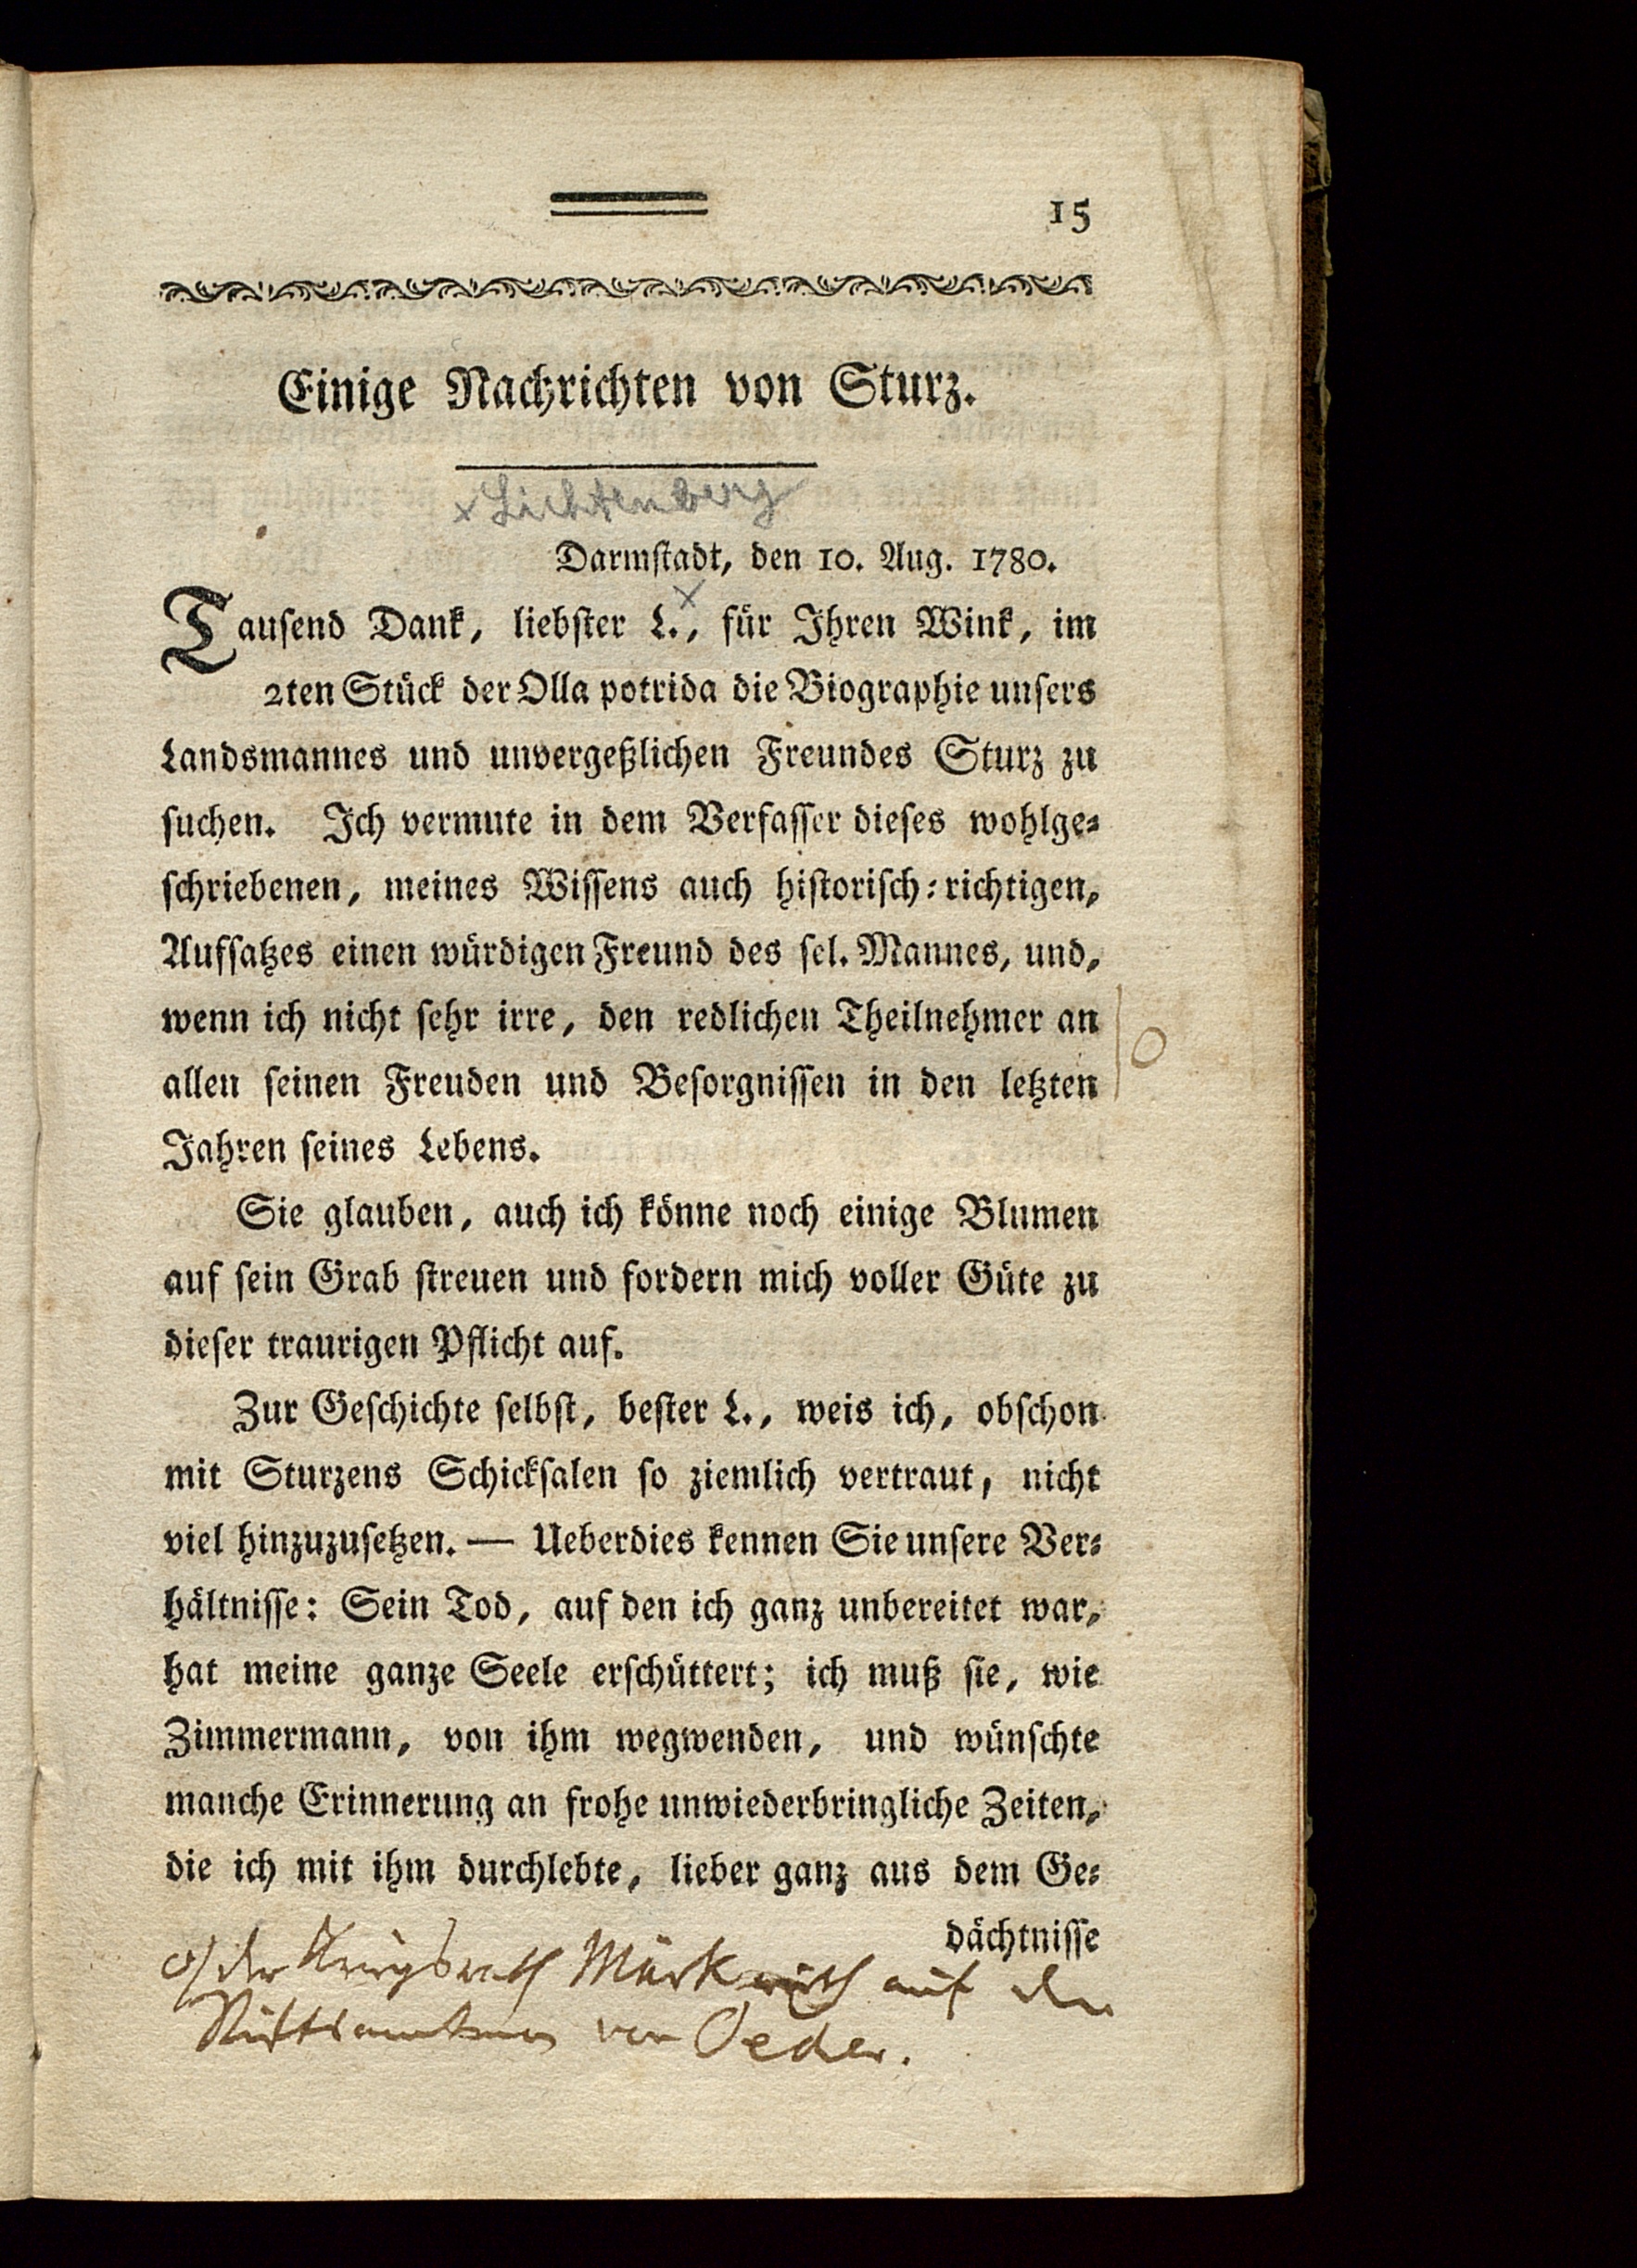 15
Einige Nachrichten von Sturz.
x Lichtenberg
Darmſtadt, den 10. Aug. 1780.
Tauſend Dank, liebſter L.x, für Ihren Wink, im
2ten Stück der Olla potrida die Biographie unſers
Landsmannes und unvergeßlichen Freundes Sturz zu
ſuchen. Ich vermute in dem Verfaſſer dieſes wohlge⸗
ſchriebenen, meines Wiſſens auch hiſtoriſch⸗richtigen,
Aufſatzes einen würdigen Freund des ſel. Mannes, und,
wenn ich nicht ſehr irre, den redlichen Theilnehmer an
allen ſeinen Freuden und Beſorgniſſen in den letzten
O
Jahren ſeines Lebens.
Sie glauben, auch ich könne noch einige Blumen
auf ſein Grab ſtreuen und fordern mich voller Güte zu
dieſer traurigen Pflicht auf.
Zur Geſchichte ſelbſt, beſter L., weis ich, obſchon
mit Sturzens Schickſalen ſo ziemlich vertraut, nicht
viel hinzuzuſetzen. — Ueberdies kennen Sie unſere Ver⸗
hältniſſe: Sein Tod, auf den ich ganz unbereitet war,
hat meine ganze Seele erſchüttert; ich muß ſie, wie
Zimmermann, von ihm wegwenden, und wünſchte
manche Erinnerung an frohe unwiederbringliche Zeiten,
die ich mit ihm durchlebte, lieber ganz aus dem Ge⸗
dächtniſſe
o/ der Kriegsrath Märk auf den
von Oeder.